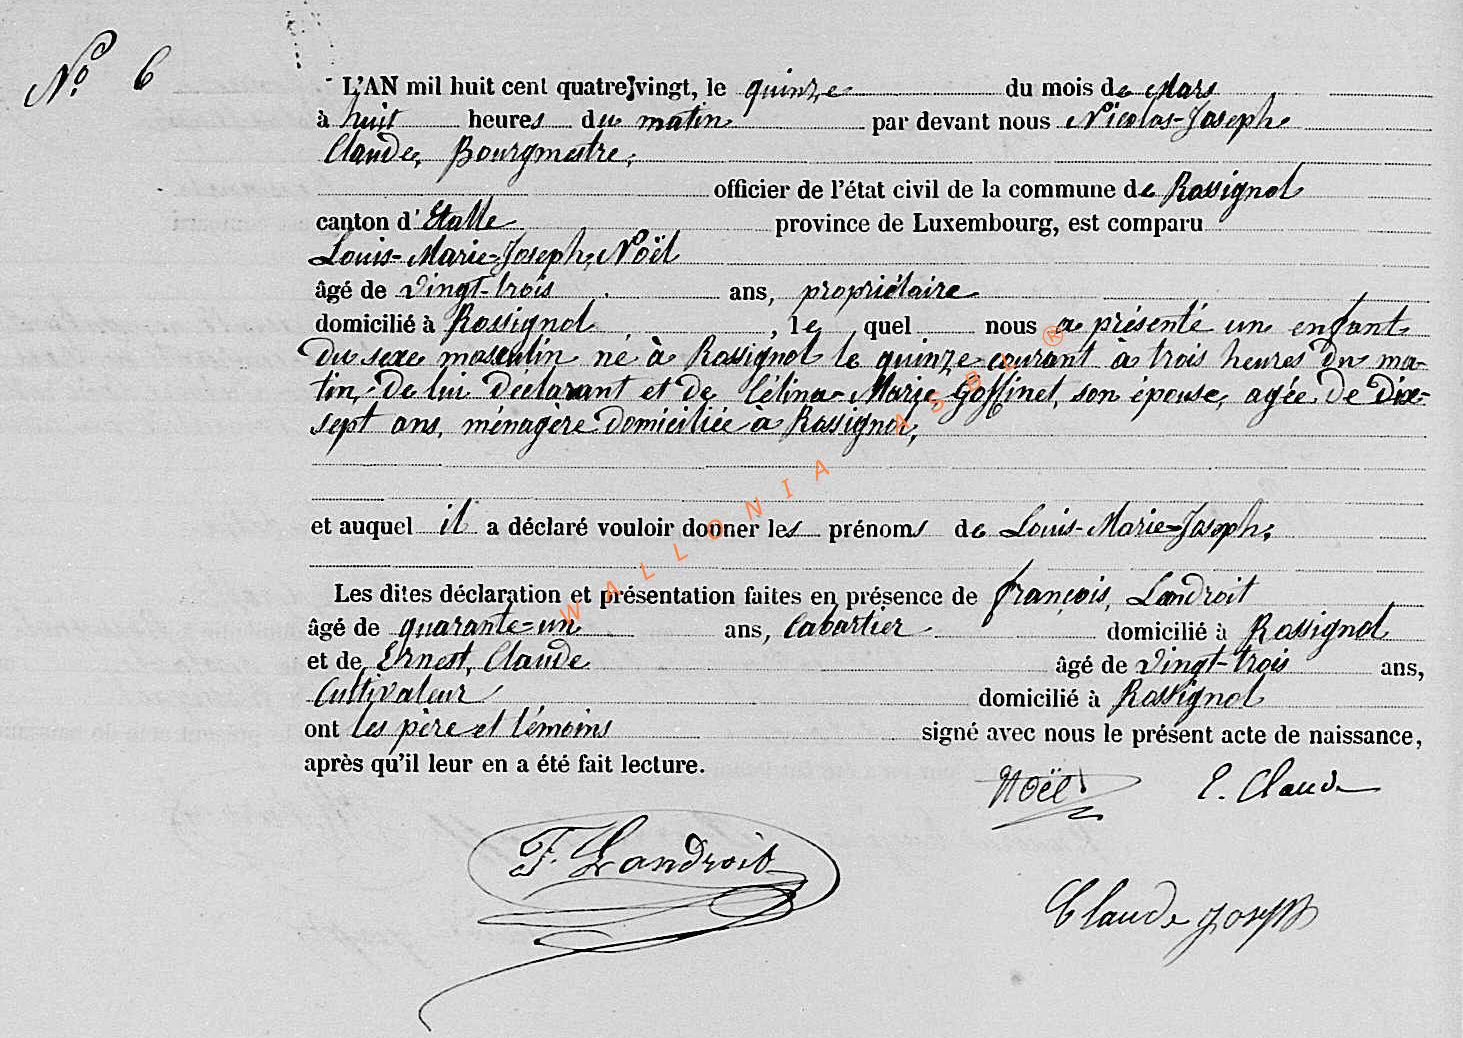 No. 6
L'AN mil huit cent quatre-vingt, le quinze du mois de Mars
à huit heures du matin par devant nous Nicolas-Joseph
Claude, Bourgmestre,
officier de l'état civil de la commune de Rossignol
canton d'Etalle province de Luxembourg, est comparu
Louis-Marie-Joseph, Noël
âgé de vingt-trois ans, propriétaire
domicilié à Rossignol, lequel nous a présenté un enfant
du sexe masculin né à Rossignol le quinze courant à trois heures du ma-
tin, de lui déclarant et de Célina-Marie, Goffinet, son épouse, agée de dix-
sept ans, ménagère domiciliée à Rossignol,
et auquel il a déclaré vouloir donner les prénoms de Louis-Marie-Joseph,
Les dites déclaration et présentation faites en présence de françois, Landroit
âgé de quarante-un ans, Cabartier domicilié à Rossignol
et de Ernest, Claude âgé de vingt-trois ans,
Cultivateur domicilié à Rossignol
ont les père et témoins signé avec nous le présent acte de naissance,
après qu'il leur en a été fait lecture.
Noël E. Claude
F. Landroit
Claude Joseph
WALLONIA ASBL ®